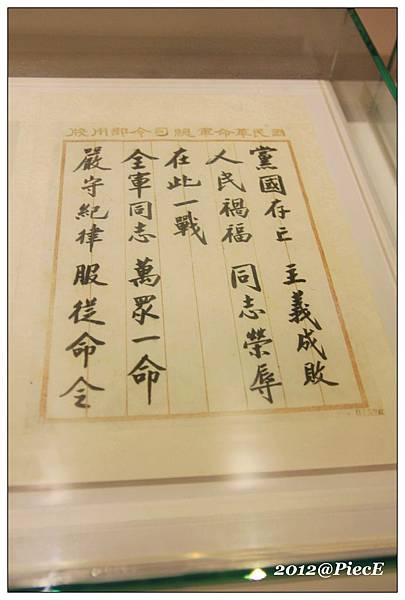 國民革命軍總司令部用牋
黨國存亡 主義成敗
人民禍福 同志榮辱
在此一戰
全軍同志 萬眾一命
嚴守紀律 服從命令
2012@PiecE